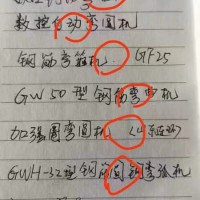 数控自动弯圆机
钢筋弯箍机 GF25
GW50型钢筋弯曲机
加强圈弯圆机
GWH-32型钢筋圆钢弯弧机